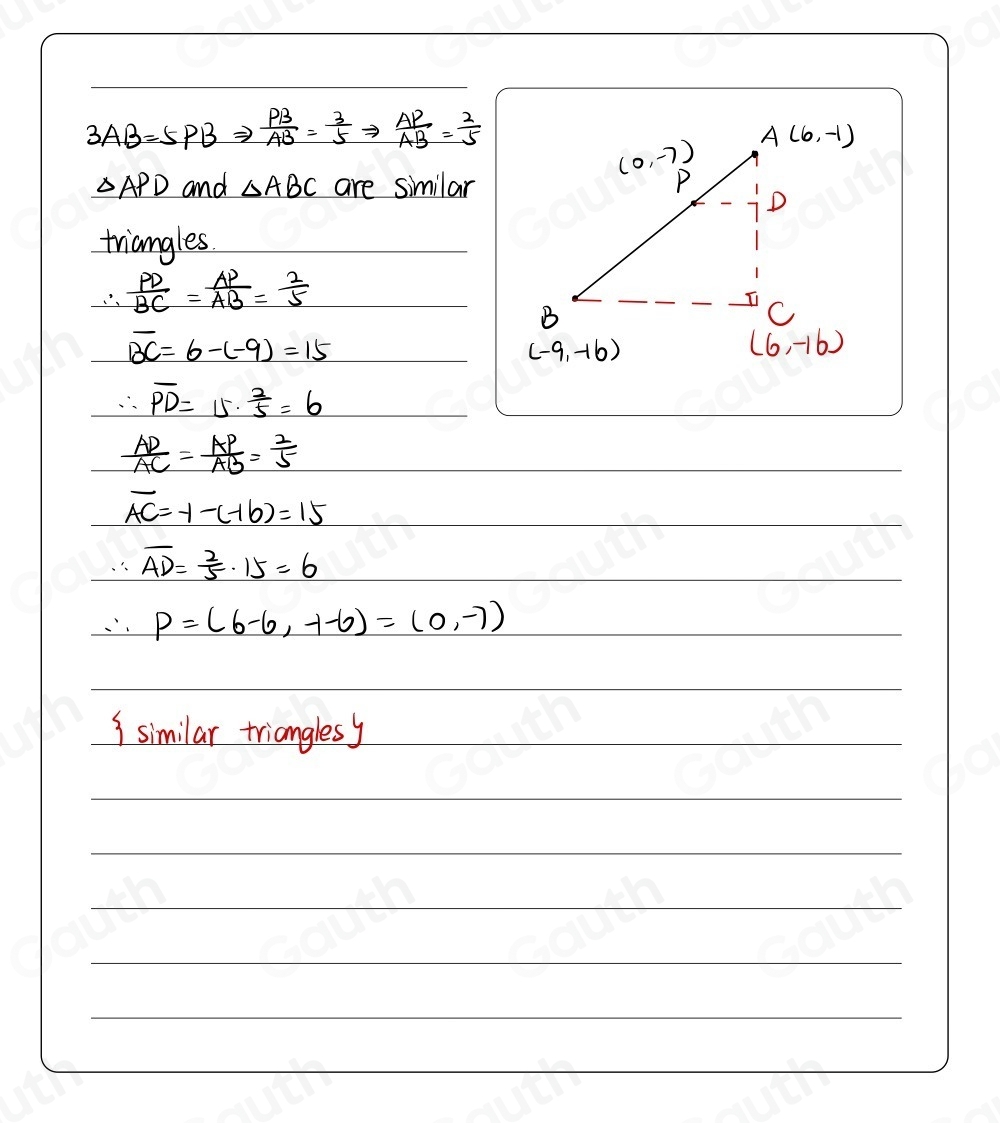 3AB=5PB ⇒ PB/AB = 3/5 ⇒ AP/AB = 2/5
△APD and △ABC are similar
triangles.
∴ PD/BC = AP/AB = 2/5
BC = 6-(-9) = 15
∴ PD = 15 · 2/5 = 6
AD/AC = AP/AB = 2/5
AC = -1-(-16) = 15
∴ AD = 2/5 · 15 = 6
∴ P = (6-6, -1-6) = (0,-7)
{similar triangles}
A (6,-1)
(0,-7)
P
D
B
(-9,-16)
C
(6,-16)
Gauth